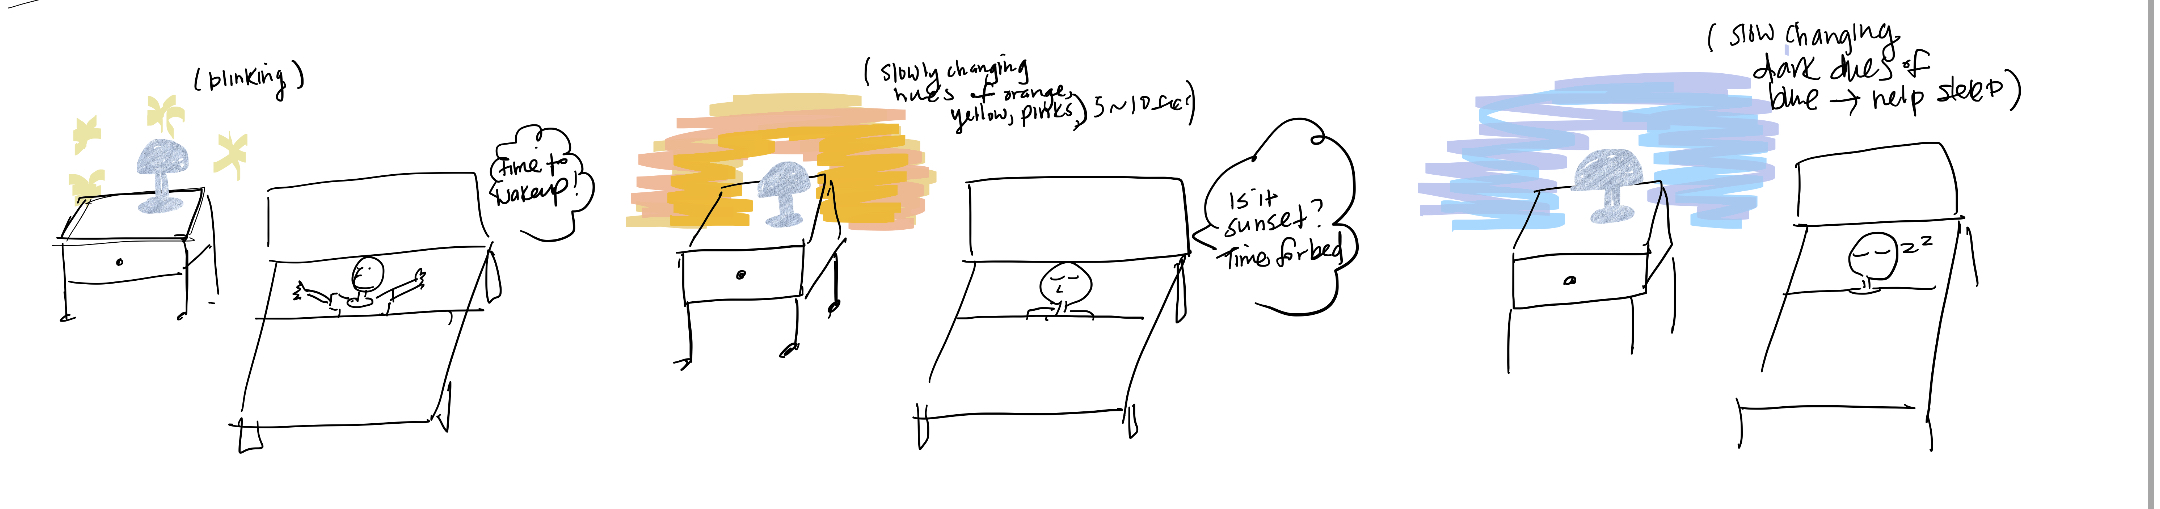 (blinking)
Time to
wakeup!
(slowly changing
hues of orange,
yellow, pinks,) 5~10 sec)
Is it
sunset?
Time for bed
(slow changing
dark hues of
blue → help sleep)
zz